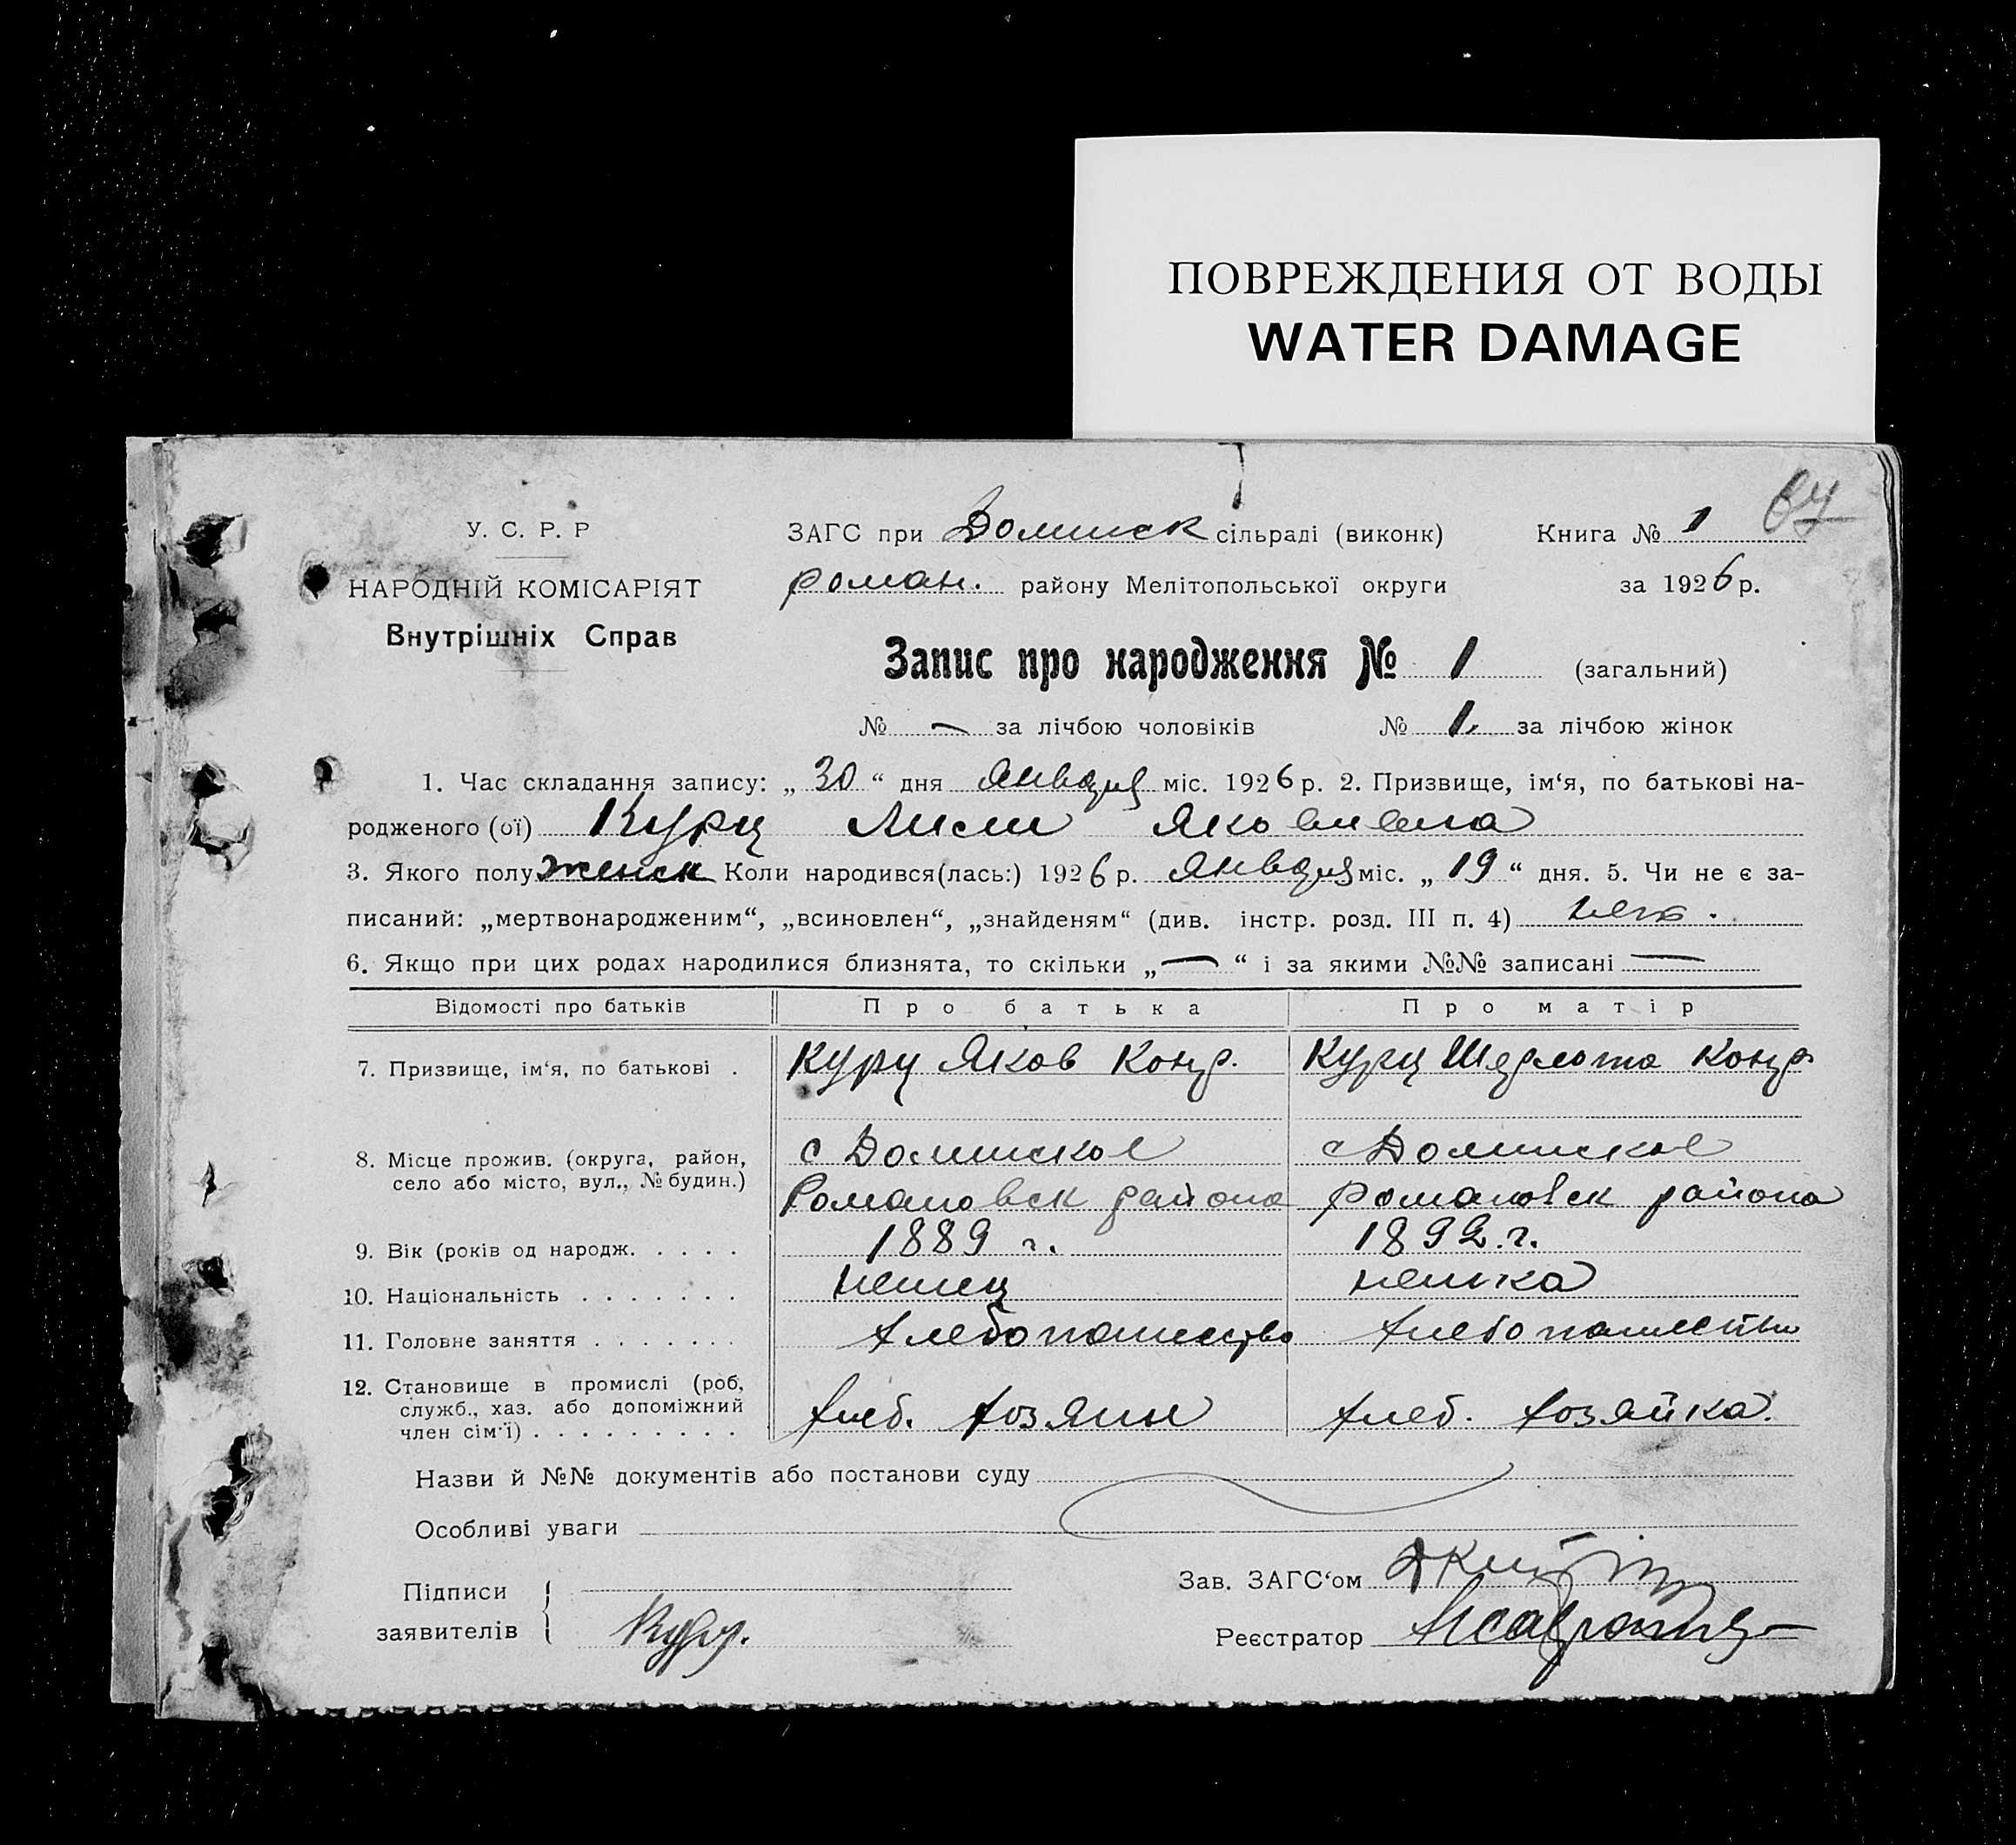 ПОВРЕЖДЕНИЯ ОТ ВОДЫ
WATER DAMAGE
67
У. С. Р. Р
НАРОДНІЙ КОМІСАРІЯТ
Внутрішніх Справ
ЗАГС при Долинск сільраді (виконк) Книга № 1
роман. району Мелітопольської округи за 1926 р.
Запис про народження № 1 (загальний)
№ — за лічбою чоловіків № 1. за лічбою жінок
1. Час складання запису: „30“ дня Января міс. 1926 р. 2. Призвище, ім‘я, по батькові на-
родженого (ої) Курц Яковлевна
3. Якого полу женск Коли народився(лась:) 1926 р. Января міс. „19“ дня. 5. Чи не є за-
писаний: „мертвонародженим“, „всиновлен“, „знайденям“ (див. інстр. розд. III п. 4) нет.
6. Якщо при цих родах народилися близнята, то скільки „—“ і за якими №№ записані —
Відомості про батьків Про батька Про матір
7. Призвище, ім‘я, по батькові . Курц Яков Конр. Курц Шарлота Конр.
8. Місце прожив. (округа, район, с Долинское с Долинское
село або місто, вул., № будин.) Романовск района Романовск района
9. Вік (років од народж. . . . . 1889 г. 1892 г.
10. Національність . . . . . . . немец немка
11. Головне заняття . . . . . . . хлебопашество хлебопашество
12. Становище в промислі (роб,
служб., хаз. або допоміжний хлеб. хозяин хлеб. хозяйка.
член сім‘ї) . . . . . . . . .
Назви й №№ документів або постанови суду
Особливі уваги
Підписи
заявителів Курц.
Зав. ЗАГС‘ом
Реєстратор